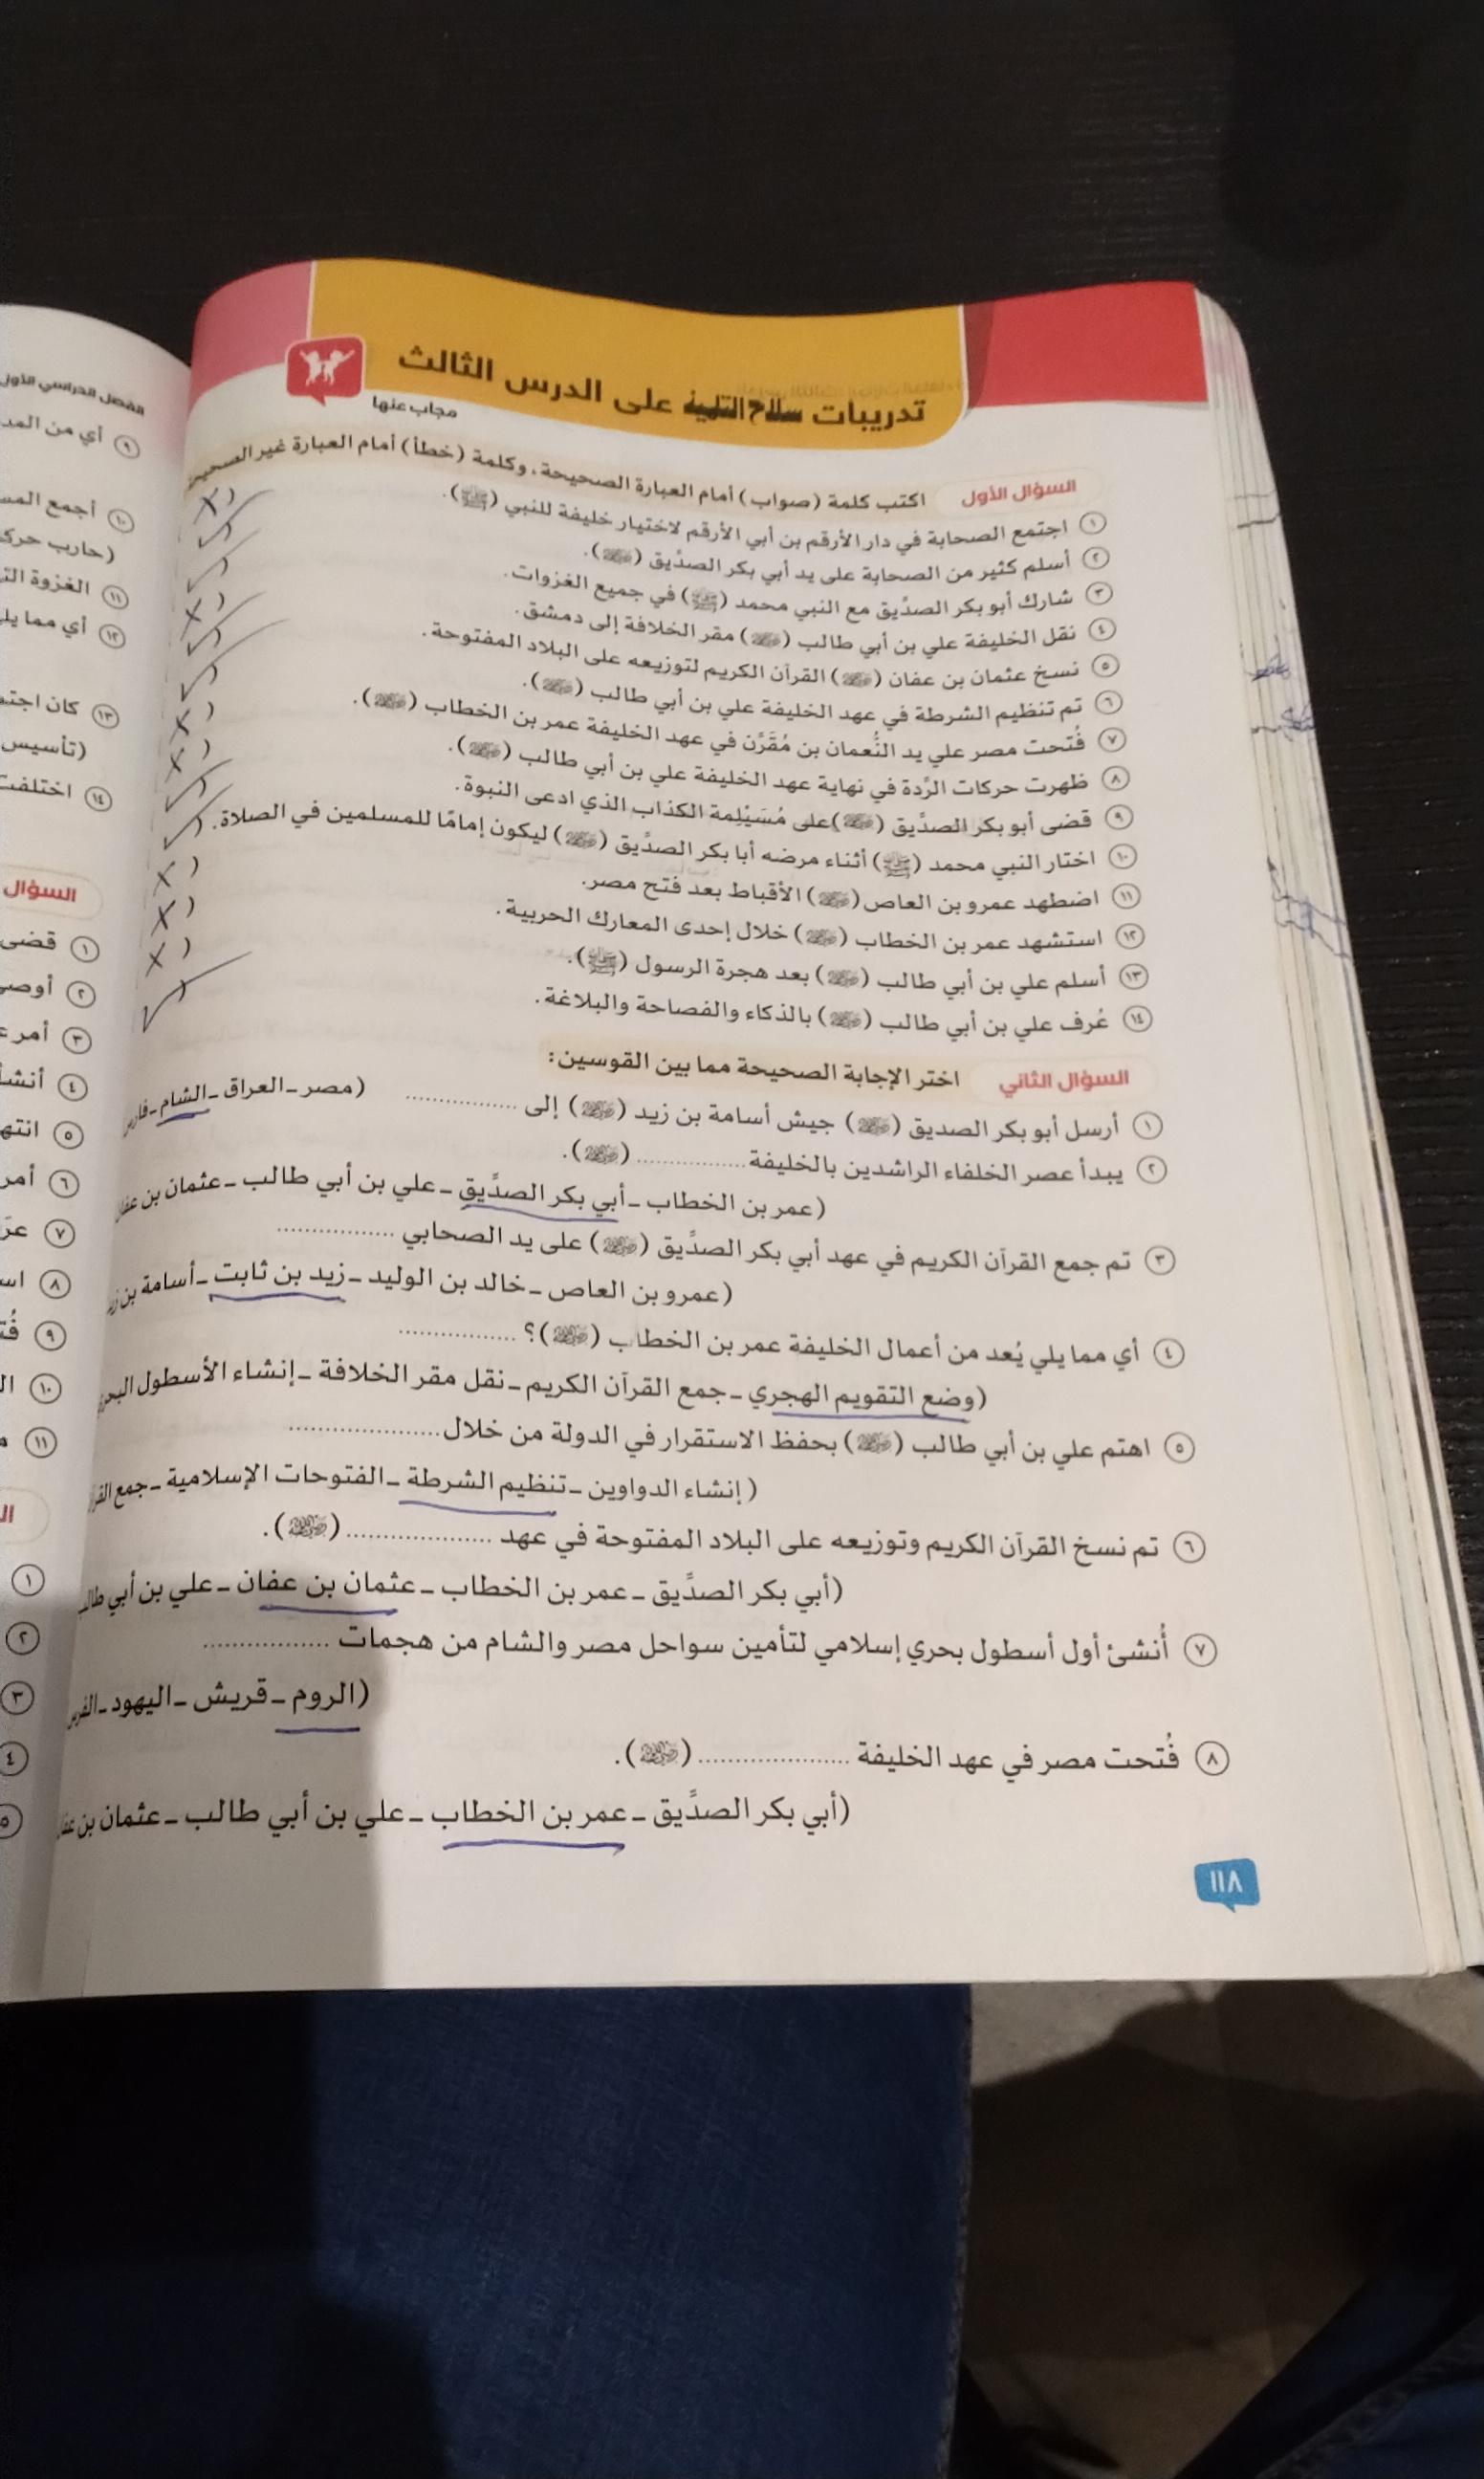 تدريبات سلاح التلميذ على الدرس الثالث
مجاب عنها
السؤال الأول اكتب كلمة (صواب) أمام العبارة الصحيحة، وكلمة (خطأ) أمام العبارة غير الصحيحة
١ اجتمع الصحابة في دار الأرقم بن أبي الأرقم لاختيار خليفة للنبي (ﷺ). X
٢ أسلم كثير من الصحابة على يد أبي بكر الصدِّيق (). ✓
٣ شارك أبو بكر الصدِّيق مع النبي محمد (ﷺ) في جميع الغزوات. ✓
٤ نقل الخليفة علي بن أبي طالب () مقر الخلافة إلى دمشق. X
٥ نسخ عثمان بن عفان () القرآن الكريم لتوزيعه على البلاد المفتوحة. ✓
٦ تم تنظيم الشرطة في عهد الخليفة علي بن أبي طالب (). ✓
٧ فُتحت مصر علي يد النُّعمان بن مُقَرَّن في عهد الخليفة عمر بن الخطاب (). X
٨ ظهرت حركات الرِّدة في نهاية عهد الخليفة علي بن أبي طالب (). X
٩ قضى أبو بكر الصدِّيق () على مُسَيْلِمة الكذاب الذي ادعى النبوة. ✓
١٠ اختار النبي محمد (ﷺ) أثناء مرضه أبا بكر الصدِّيق () ليكون إمامًا للمسلمين في الصلاة. ✓
١١ اضطهد عمرو بن العاص () الأقباط بعد فتح مصر. X
١٢ استشهد عمر بن الخطاب () خلال إحدى المعارك الحربية. X
١٣ أسلم علي بن أبي طالب () بعد هجرة الرسول (ﷺ). X
١٤ عُرف علي بن أبي طالب () بالذكاء والفصاحة والبلاغة. ✓
السؤال الثاني اختر الإجابة الصحيحة مما بين القوسين:
١ أرسل أبو بكر الصديق () جيش أسامة بن زيد () إلى ................ (مصر - العراق - الشام - فارس
٢ يبدأ عصر الخلفاء الراشدين بالخليفة ................ ().
(عمر بن الخطاب - أبي بكر الصدِّيق - علي بن أبي طالب - عثمان بن عفان
٣ تم جمع القرآن الكريم في عهد أبي بكر الصدِّيق () على يد الصحابي ................
(عمرو بن العاص - خالد بن الوليد - زيد بن ثابت - أسامة بن زيد
٤ أي مما يلي يُعد من أعمال الخليفة عمر بن الخطاب ()؟ ................
(وضع التقويم الهجري - جمع القرآن الكريم - نقل مقر الخلافة - إنشاء الأسطول البحري
٥ اهتم علي بن أبي طالب () بحفظ الاستقرار في الدولة من خلال ....................
(إنشاء الدواوين - تنظيم الشرطة - الفتوحات الإسلامية - جمع القرآن
٦ تم نسخ القرآن الكريم وتوزيعه على البلاد المفتوحة في عهد .................... ().
(أبي بكر الصدِّيق - عمر بن الخطاب - عثمان بن عفان - علي بن أبي طالب
٧ أُنشئ أول أسطول بحري إسلامي لتأمين سواحل مصر والشام من هجمات .................
(الروم - قريش - اليهود - الفرس
٨ فُتحت مصر في عهد الخليفة .................... ().
(أبي بكر الصدِّيق - عمر بن الخطاب - علي بن أبي طالب - عثمان بن عفان
١١٨
الفصل الدراسي الأول
٩ أي من المد
١٠ أجمع المس
(حارب حرك
١١ الغزوة الت
١٢ أي مما يلي
١٣ كان اجتم
(تأسيس
١٤ اختلفت
السؤال
١ قضى
٢ أوصى
٣ أمر
٤ أنشأ
٥ انتهـ
٦ أمر
٧ عز
٨ اس
٩ فُتـ
١٠ ال
١١
١
٢
٣
٤
٥